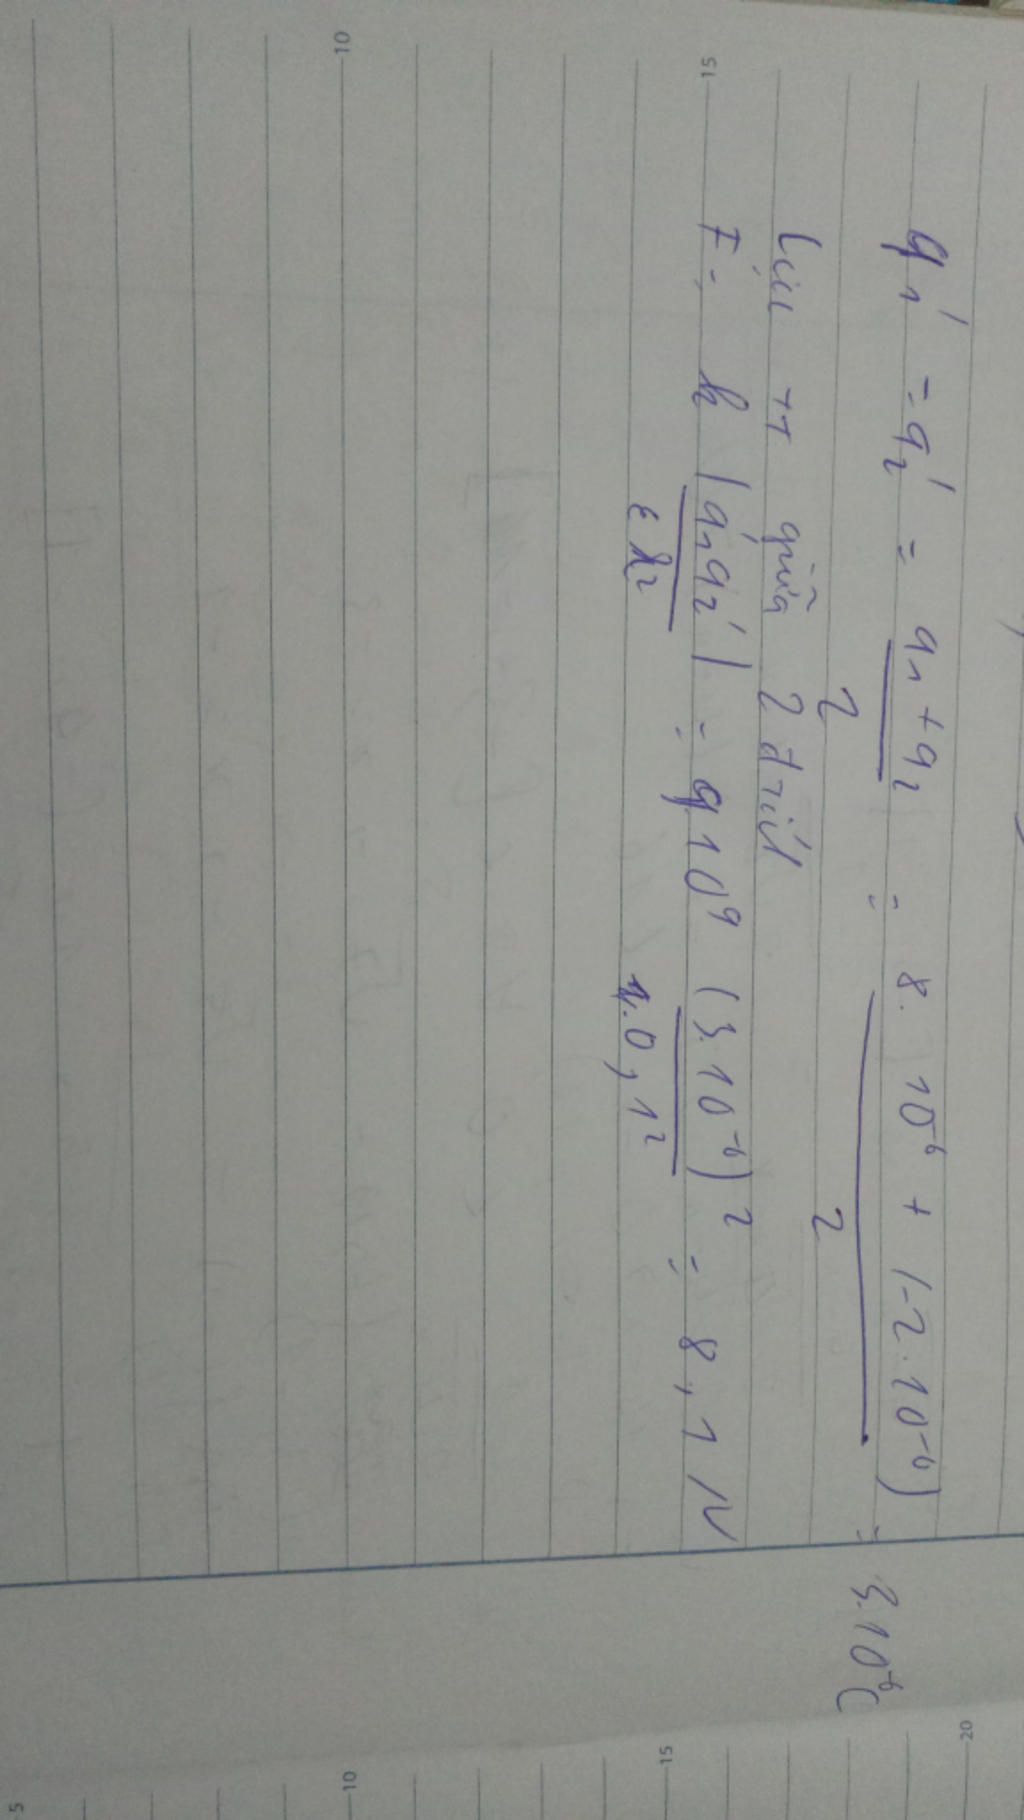 q₁' = q₂' = (q₁ + q₂)/2 = (8.10⁻⁶ + (-2.10⁻⁶)/2 = 3.10⁻⁶C
Lực tt giữa 2 đtích
F = k |q₁'q₂'|/εr² = 9.10⁹ (3.10⁻⁶)²/1.0,1² = 8,1 N
10
15
5
10
15
20